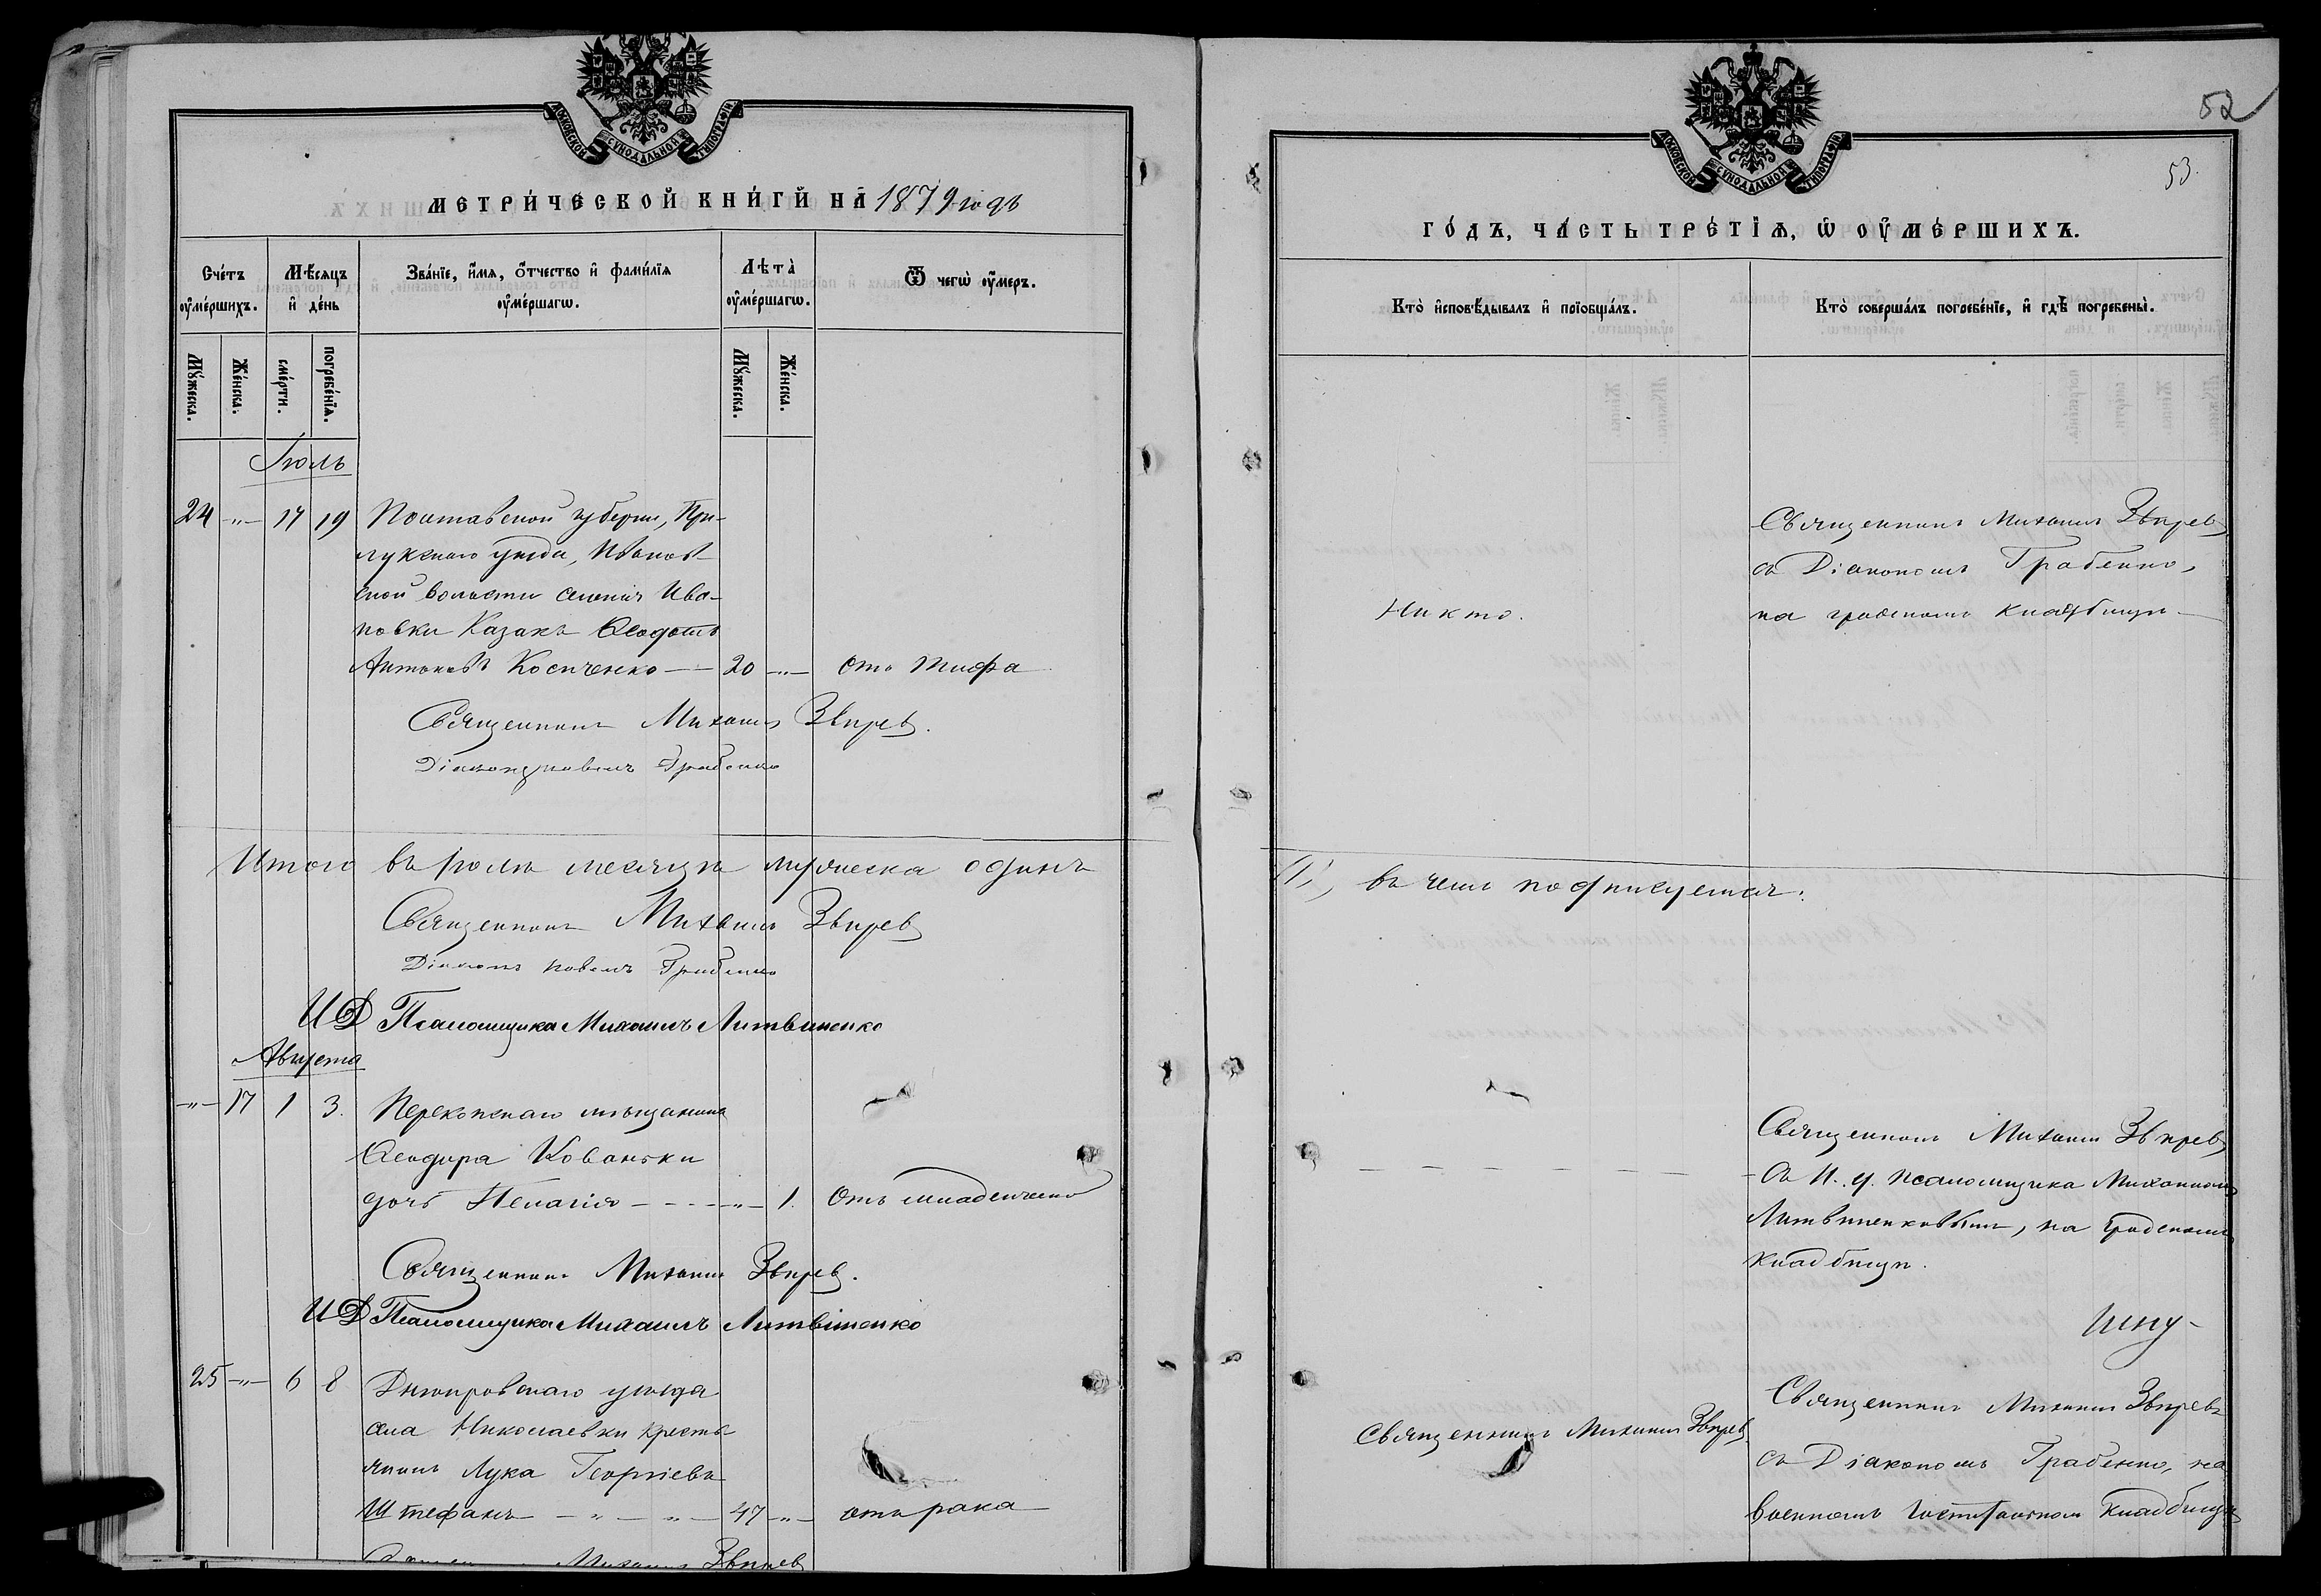 МОСКОВСКОЙ СѴНОДАЛЬНОЙ ТИПОГРАФІИ
МЕТРИ́ЧЕСКОЙ КНИ́ГИ НА 1879 годъ
Сче́тъ оу҆ме́ршихъ.
Мѣ́сяцъ и҆ де́нь
Зва́нїе, и҆́мѧ, ѻ҆́тчество и҆ фами́лїѧ оу҆ме́ршагѡ.
Лѣта̀ оу҆ме́ршагѡ.
Ѿ чегѡ̀ оу҆́меръ.
Мꙋ́жеска.
Же́нска.
сме́рти.
погребе́нїѧ.
Мꙋ́жеска.
Же́нска.
Іюль
24 -"- 17 19 Полтавской губерніи, При-
лукскаго уѣзда, Иванов-
ской волости селенія Ива-
новки Казакъ Ѳеодотъ
Антоновъ Косиченко — 20 -"- отъ тифа
Священникъ Михаилъ Звѣревъ.
Діаконъ Павелъ Грабенко
Итого въ іюлѣ месяцѣ мужеска одинъ
Священникъ Михаилъ Звѣревъ
Діаконъ Павелъ Грабенко
И Д Псаломщика Михаилъ Литвиненко
Августа
-"- 17 1 3. Перекопскаго мѣщанина
Ѳеодора Кованьки
дочь Пелагія - - - -"- 1. Отъ младенческ
Священникъ Михаилъ Звѣревъ.
И Д Псаломщика Михаилъ Литвіненко
25 -"- 6 8 Днѣпровскаго уѣзда
села Николаевки кресть-
янинъ Лука Георгіевъ
Штефанъ - " - " - 47 -"- отъ рака
Михаилъ Звѣревъ
МОСКОВСКОЙ СѴНОДАЛЬНОЙ ТИПОГРАФІИ
52
53.
ГО́ДЪ, ЧА́СТЬ ТРЕ́ТІѦ, Ѡ҆ ОУ҆МЕ́РШИХЪ.
Кто̀ и҆сповѣ́дывалъ и҆ прїобща́лъ.
Кто̀ соверша́лъ погребе́нїе, и҆ гдѣ̀ погребены̀.
Никто.
Священникъ Михаилъ Звѣревъ
съ Діакономъ Грабенко,
на градскомъ кладбищѣ
(1), въ чемъ подписуемся:
Священникъ Михаилъ Звѣревъ
съ И. д. псаломщика Михаиломъ
Литвиненковымъ, на градскомъ
кладбищѣ.
Священникъ Михаилъ Звѣревъ
Священникъ Михаилъ Звѣревъ
съ Діакономъ Грабенко, на
военномъ госпитальном кладбищѣ